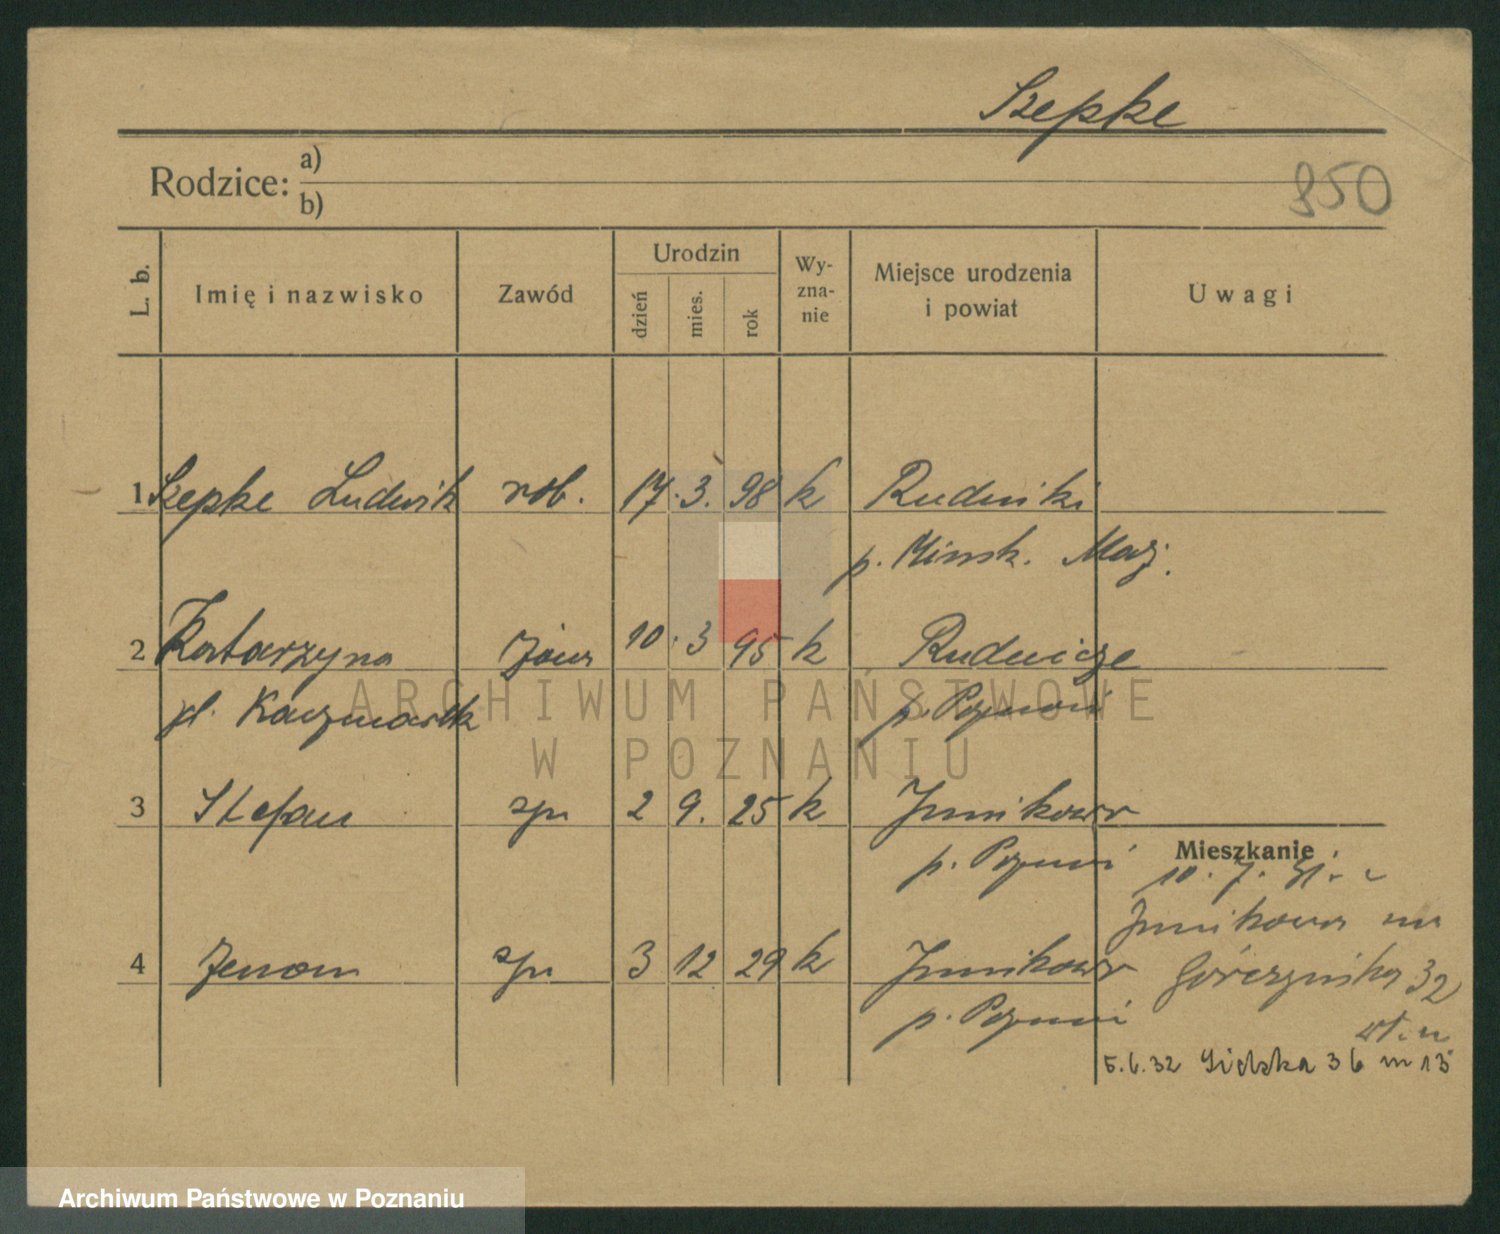 Szepke
Rodzice: a)
b)
850
L. b. Imię i nazwisko Zawód Urodzin dzień mies. rok Wy-zna-nie Miejsce urodzenia i powiat Uwagi
1 Szepke Ludwik rob. 17. 3. 98 k Rudniki
p. Minsk. Maz.
2 Katarzyna żona 10. 3 95 k Rudnicze
Kaczmarek p. Poznań
3 Stefan syn 2 9. 25 k Junikowo
p. Poznań
Mieszkanie
10. 7. 31.
Junikowo
4 Zenon syn 3 12 29 k Junikowo
Górczyńska 32
p. Poznań
5.6.32 36 m 13
ARCHIWUM PAŃSTWOWE
W POZNANIU
Archiwum Państwowe w Poznaniu